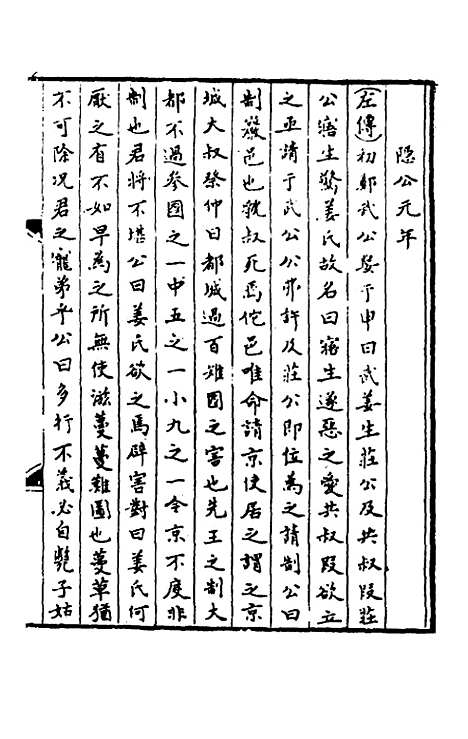 隐公元年
(左傳)初鄭武公娶于申曰武姜生莊公及共叔段莊
公寤生驚姜氏故名曰寤生遂惡之愛共叔段欲立
之亟請于武公公弗許及莊公即位為之請制公曰
制巖邑也虢叔死焉佗邑唯命請京使居之謂之京
城大叔祭仲曰都城過百雉國之害也先王之制大
都不過參國之一中五之一小九之一今京不度非
制也君將不堪公曰姜氏欲之焉辟害對曰姜氏何
厭之有不如早為之所無使滋蔓蔓難圖也蔓草猶
不可除况君之寵弟乎公曰多行不義必自斃子姑